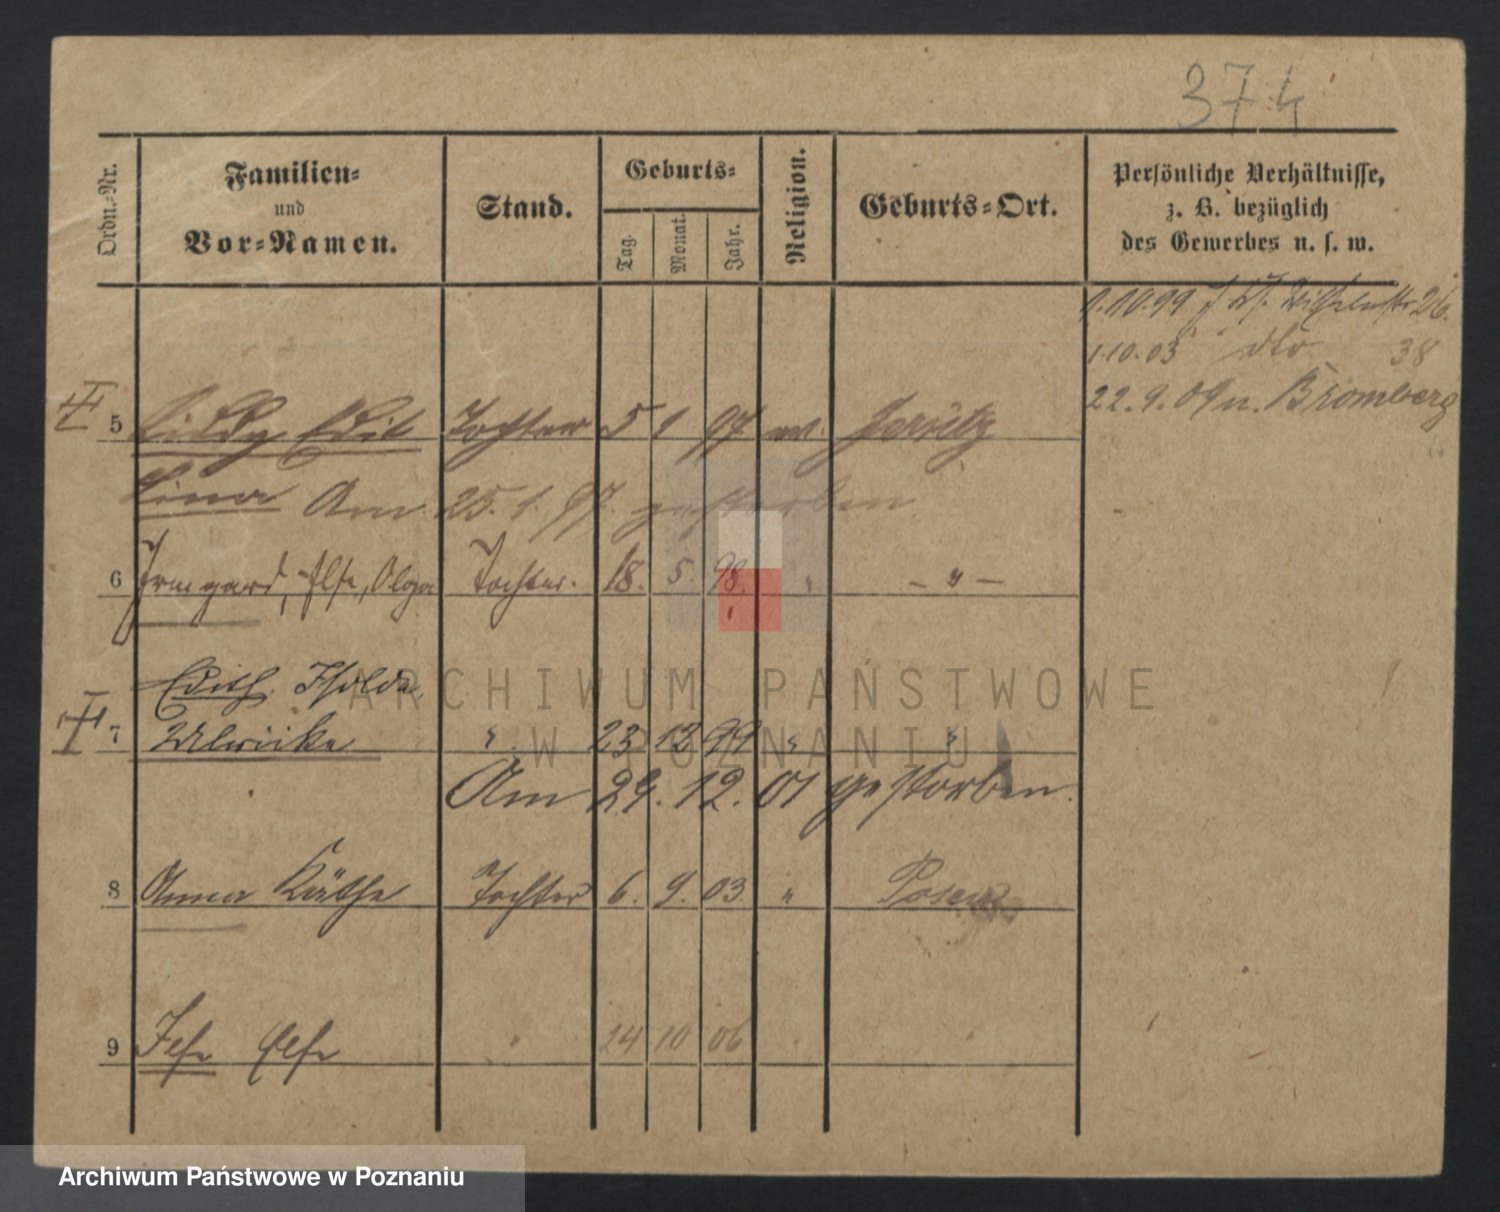 374
Ordn.-Nr.
Familien-
und
Vor-Namen.
Stand.
Geburts-
Tag.
Monat.
Jahr.
Religion.
Geburts-Ort.
Persönliche Verhältnisse,
z. B. bezüglich
des Gewerbes u. s. w.
1.10.99 26.
1.10.03 dto 38
22.9.09 n. Bromberg
5 Edit Tochter 5 1 97 Jersitz
Am 25. 1. 97. gestorben
6 Irmgard, Ilse, Olga Tochter. 18. 5. 98. " — " —
Edith. Isolde,
7 Ulricke " 23 12 99 " "
Am 29. 12. 01 gestorben.
8 Anna Käthe Tochter 6. 9. 03. " Posen
9 Else " 24 10 06 " "
ARCHIWUM PAŃSTWOWE
W POZNANIU
Archiwum Państwowe w Poznaniu